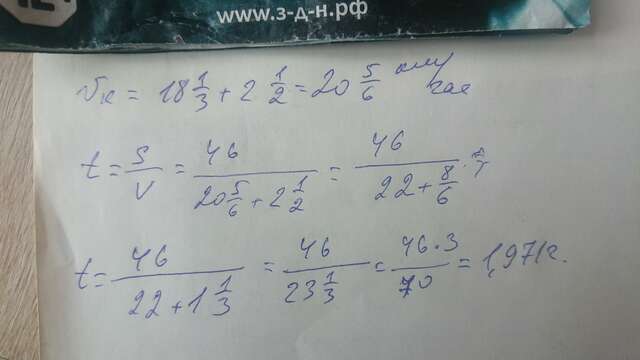 www.з-д-н.рф
Vк = 18 1/3 + 2 1/2 = 20 5/6 км/час
t = S/V = 46/(20 5/6 + 2 1/2) = 46/(22 + 8/6) .
t = 46/(22 + 1 1/3) = 46/(23 1/3) = 46·3/70 = 1,971г.